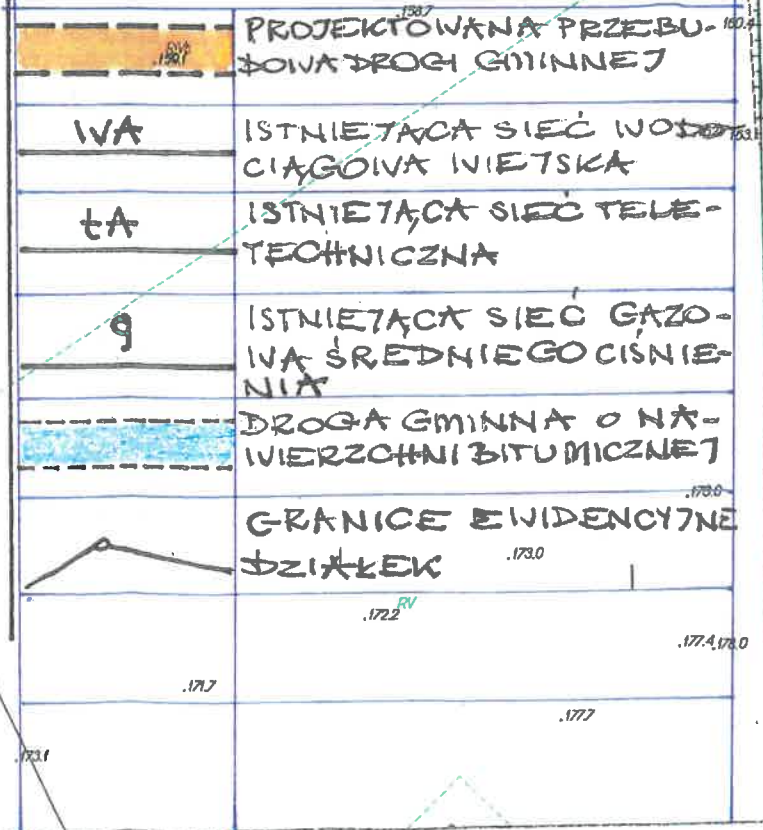 .158.7
PROJEKTOWANA PRZEBU-
160.4
DOWA DROGI GMINNEJ
WA
ISTNIEJĄCA SIEĆ WODO-
CIĄGOWA WIEJSKA
tA
ISTNIEJĄCA SIEĆ TELE-
TECHNICZNA
g
ISTNIEJĄCA SIEĆ GAZO-
WA ŚREDNIEGO CIŚNIE-
NIA
DROGA GMINNA O NA-
WIERZCHNI BITUMICZNEJ
.178.0
GRANICE EWIDENCYJNE
DZIAŁEK
.173.0
RV
.172.2
.177.4
.178.0
.171.7
.177.7
.173.1